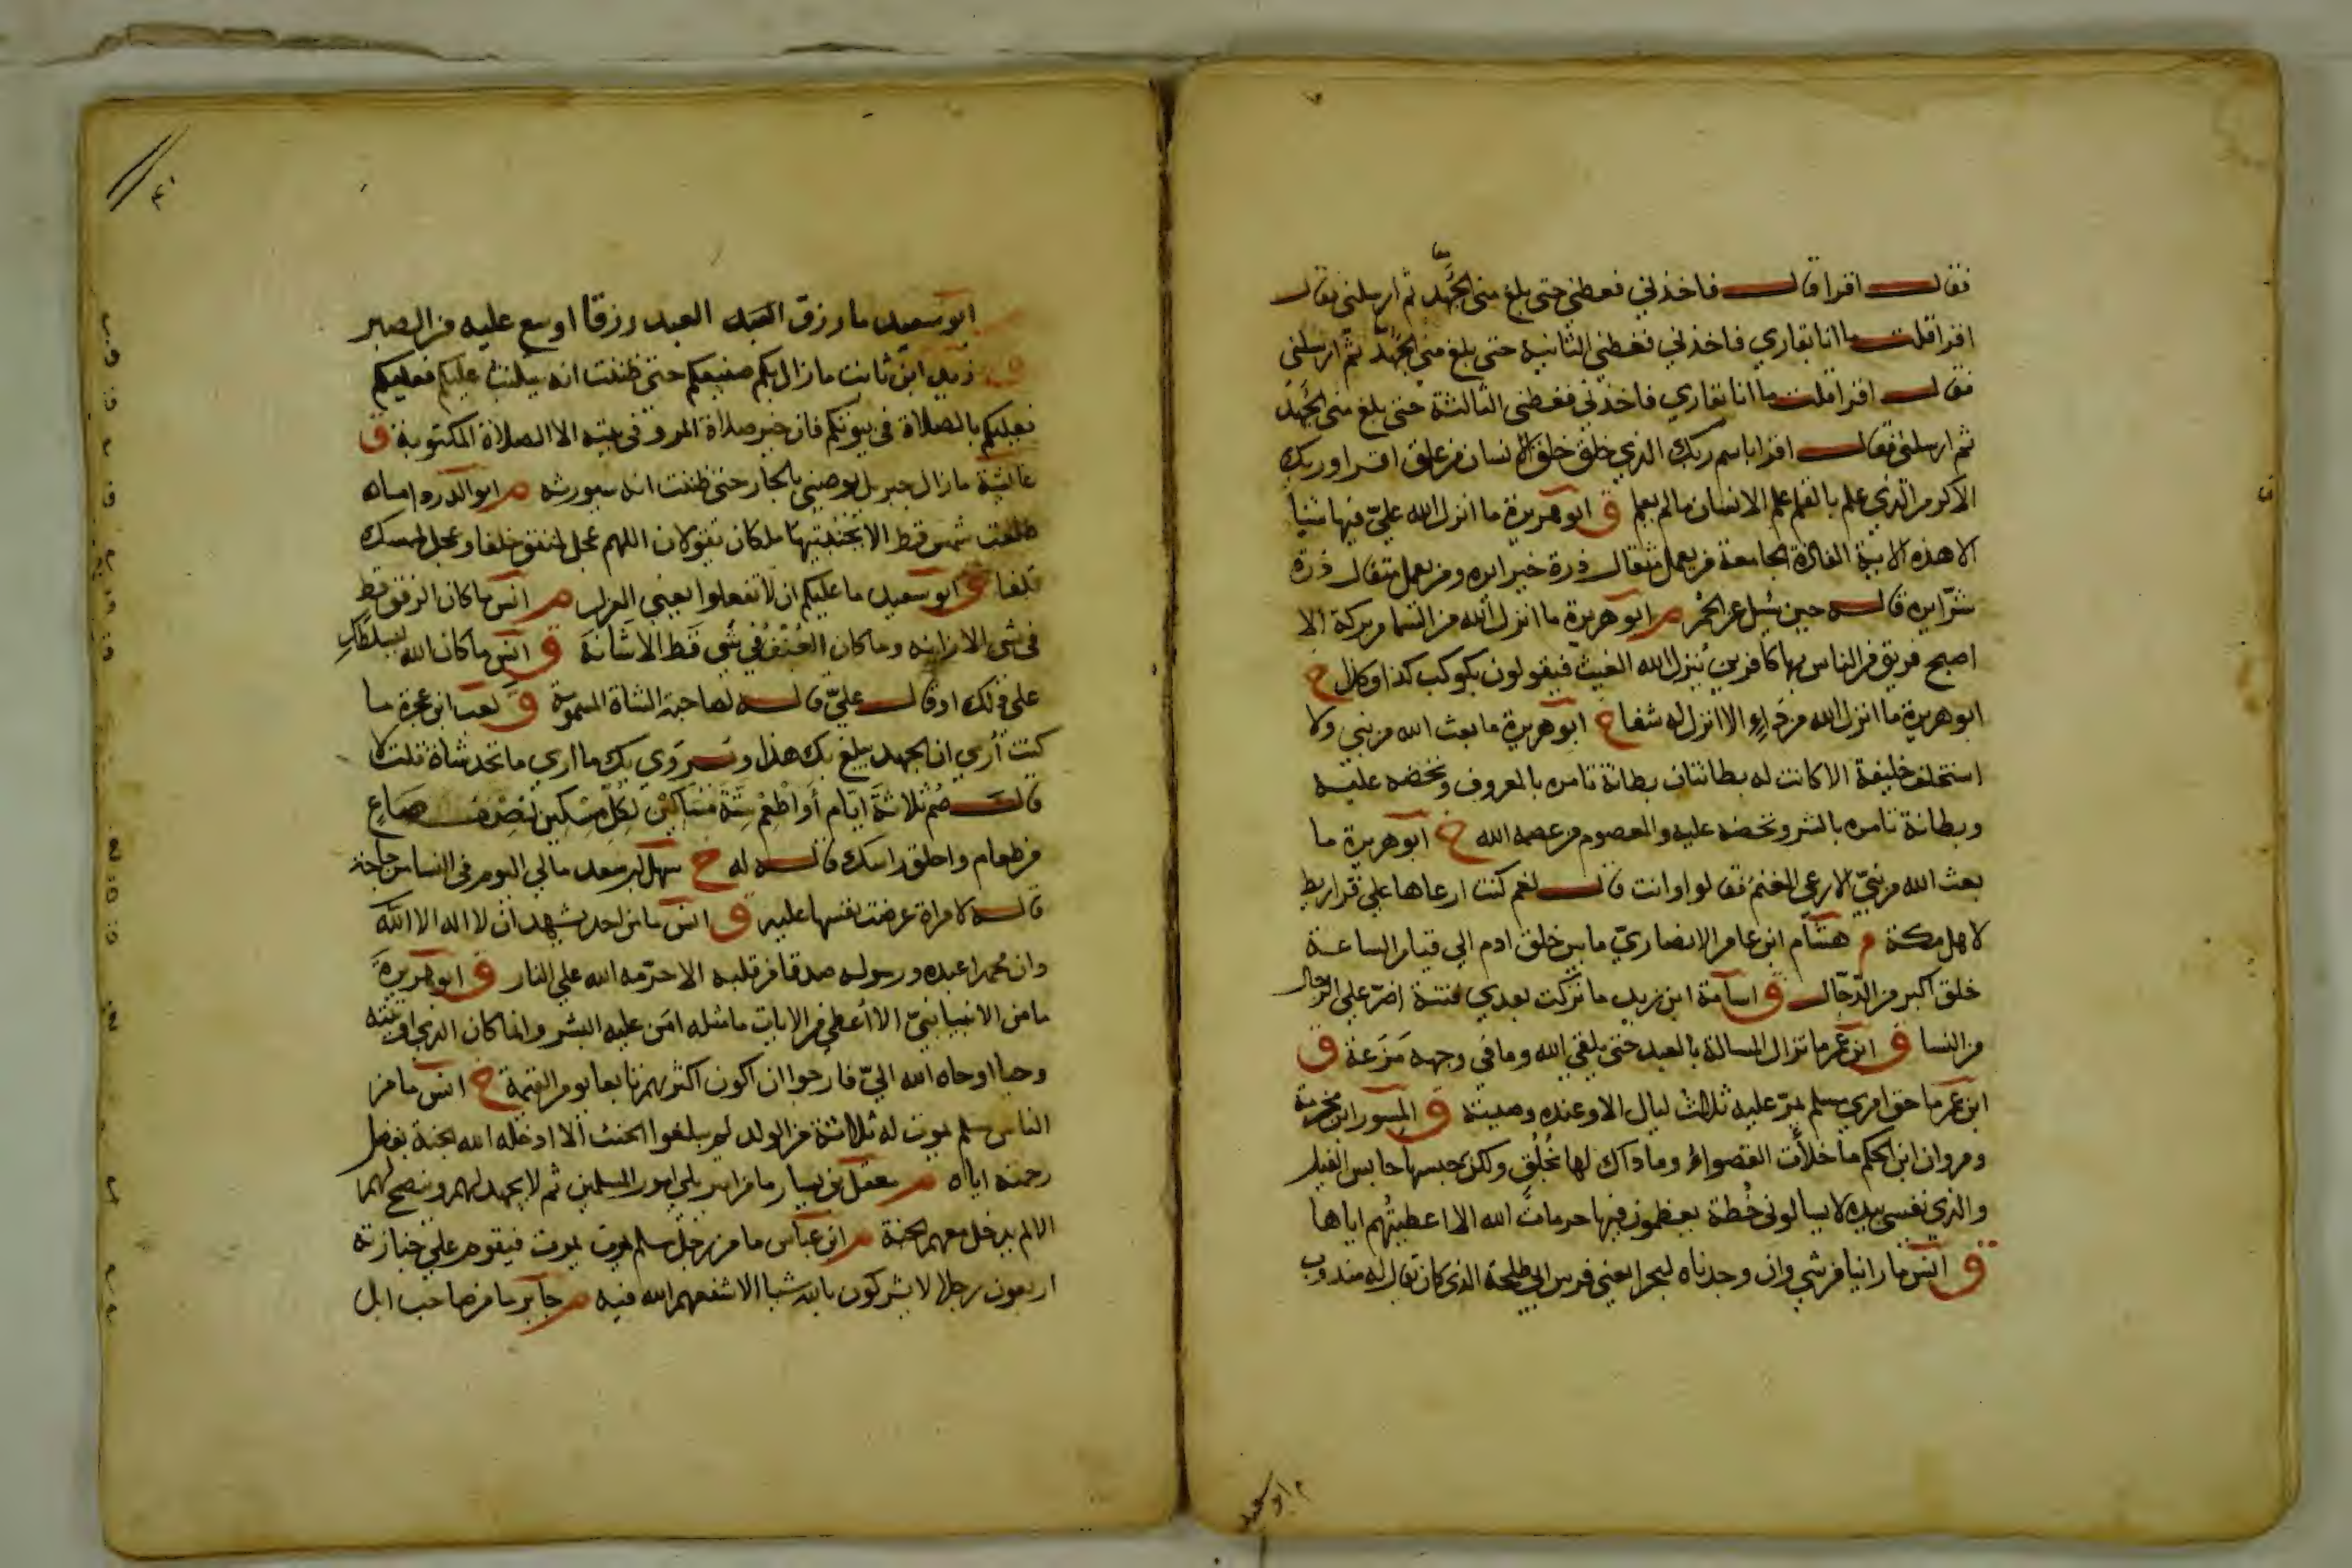 فقال اقرا قال فاخذني فغطني حتى بلغ مني الجهد ثم ارسلني فقال
اقرا قلت ما انا بقاري فاخذني فغطني الثانية حتى بلغ مني الجهد ثم ارسلني
فقال اقرا قلت ما انا بقاري فاخذني فغطني الثالثة حتى بلغ مني الجهد
ثم ارسلني فقال اقرا باسم ربك الذي خلق خلق الانسان من علق اقرا وربك
الاكرم الذي علم بالقلم علم الانسان ما لم يعلم ق ابو هريرة ما انزل الله علي فيها شيا
الا هذه الاية الفاذة الجامعة فمن يعمل مثقال ذرة خيرا يره ومن يعمل مثقال ذرة
شرا يره قاله حين سيل عن الحمر م ابو هريرة ما انزل الله من السما من بركة الا
اصبح فريق من الناس بها كافرين ينزل الله الغيث فيقولون بكوكب كذا وكذا خ
ابو هريرة ما انزل الله من داء الا انزل له شفا خ ابو هريرة ما بعث الله من نبي ولا
استخلف خليفة الا كانت له بطانتان بطانة تامره بالمعروف وتحضه عليه
وبطانة تامره بالشر وتحضه عليه والمعصوم من عصمه الله خ ابو هريرة ما
بعث الله من نبي الا رعى الغنم فقالوا وانت قال نعم كنت ارعاها على قراريط
لاهل مكة م هشام ابن عامر الانصاري ما بين خلق ادم الي قيام الساعة
خلق اكبر من الدجال ق اسامة ابن زيد ما تركت بعدي فتنة اضر علي الرجال
من النسا ق ابن عمر ما تزال المسالة بالعبد حتى يلقى الله وما في وجهه مزعة ق
ابن عمر ما حق امري مسلم يمر عليه ثلاث ليال الا وعنده وصيته ق المسور ابن مخرمة
ومروان ابن الحكم ما خلأت القصواء وما ذاك لها بخلق ولكن حبسها حابس الفيل
والذي نفسي بيده لا يسالوني خطة يعظمون فيها حرمات الله الا اعطيتهم اياها
ق انس ما راينا من شي وان وجدناه لبحرا يعني فرس ابي طلحة الذي كان يقال له مندوب
ابو سعيد
ابو سعيد ما رزق العبد العبد رزقا اوسع عليه من الصبر
ق زيد ابن ثابت ما زال بكم صنيعكم حتى ظننت انه سيكتب عليكم فعليكم
فعليكم بالصلاة في بيوتكم فان خير صلاة المرء في بيته الا الصلاة المكتوبة ق
عائشة ما زال جبريل يوصيني بالجار حتى ظننت انه سيورثه م ابو الدرداء ما
طلعت شمس قط الا بجنبتيها ملكان يقولان اللهم عجل لمنفق خلفا وعجل لممسك
تلفا ق ابو سعيد ما عليكم ان لا تفعلوا يعني العزل م انس ما كان الرفق قط
في شي الا زانه وما كان العنف في شي قط الا شانه ق انس ما كان الله ليسلطك
على ذلك او قال علي قاله لصاحبة الشاة المسمومة ق كعب ابن عجرة ما
كنت أرى ان الجهد بلغ بك هذا ويروى بك ما ارى ما تجد شاة قلت لا
قال صم ثلاثة ايام أو اطعم ستة مساكين لكل مسكين نصف صاع
من طعام واحلق راسك قاله له خ سهل بن سعد ما لي اليوم في النسا من حاجة
قاله لامراة عرضت نفسها عليه ق انس ما من احد يشهد ان لا اله الا الله
وان محمدا عبده ورسوله صدقا من قلبه الا حرمه الله علي النار ق ابو هريرة
ما من الانبيا نبي الا أعطي من الايات ما مثله امن عليه البشر وانما كان الذي اوتيته
وحيا اوحاه الله الي فارجوا ان اكون اكثرهم تابعا يوم القيمة خ انس ما من
الناس مسلم يموت له ثلاثة من الولد لم يبلغوا الحنث الا ادخله الله الجنة بفضل
رحمته اياه م معقل بن يسار ما من امير يلي امور المسلمين ثم لا يجهد لهم وينصح لهم
الا لم يدخل معهم الجنة م ابن عباس ما من رجل مسلم يموت فيقوم علي جنازته
اربعون رجلا لا يشركون بالله شيا الا شفعهم الله فيه م جابر ما من صاحب ابل